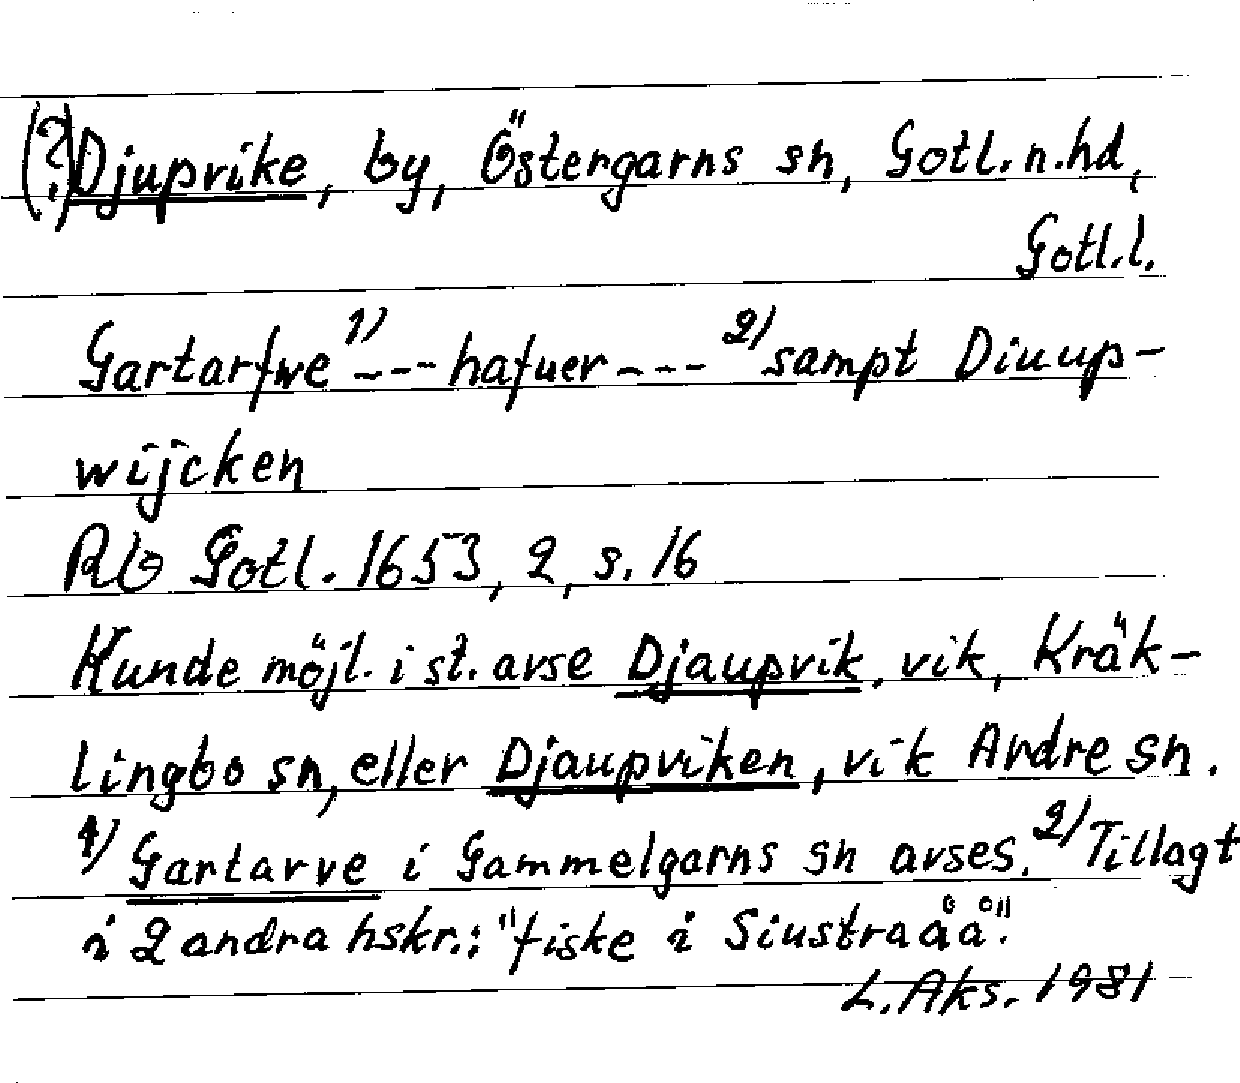 (?) Djuprike, by, Östergarns sn, Gotl. n. hd,
Gotl. l.
Gartarfwe 1) --- hafuer --- 2) sampt Diuup-
wijcken
Rb Gotl. 1653, 2, s. 16
Kunde möjl. i st. avse Djaupvik, vik, Kräk-
lingbo sn, eller Djaupviken, vik Ardre sn.
1) Gartarve i Gammelgarns sn avses. 2) Tillagt
i 2 andra hskr.: "fiske i Siustraåå".
L. Aks. 1981